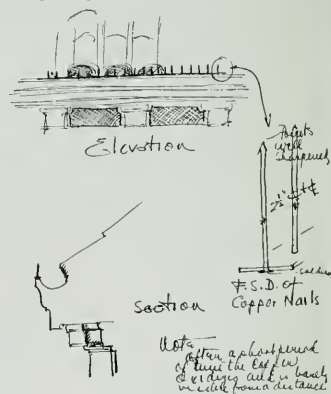 Elevation
Points
well
sharpened
2½"
Solder
F.S.D. of
Copper Nails
Section
Note
After a short period
of time the Copper
oxidizes and is barely
visible from a distance